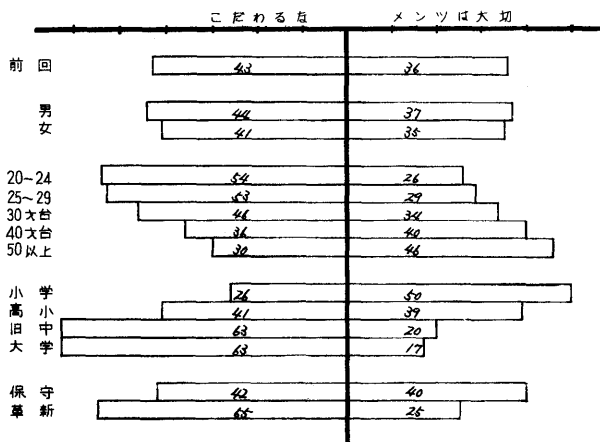 こだわるな メンツは大切
前回 43 36
男 44 37
女 41 35
20-24 54 26
25~29 53 29
30才台 46 34
40才台 36 40
50以上 30 46
小学 26 50
高小 41 39
旧中 63 20
大学 63 17
保守 42 40
革新 55 25